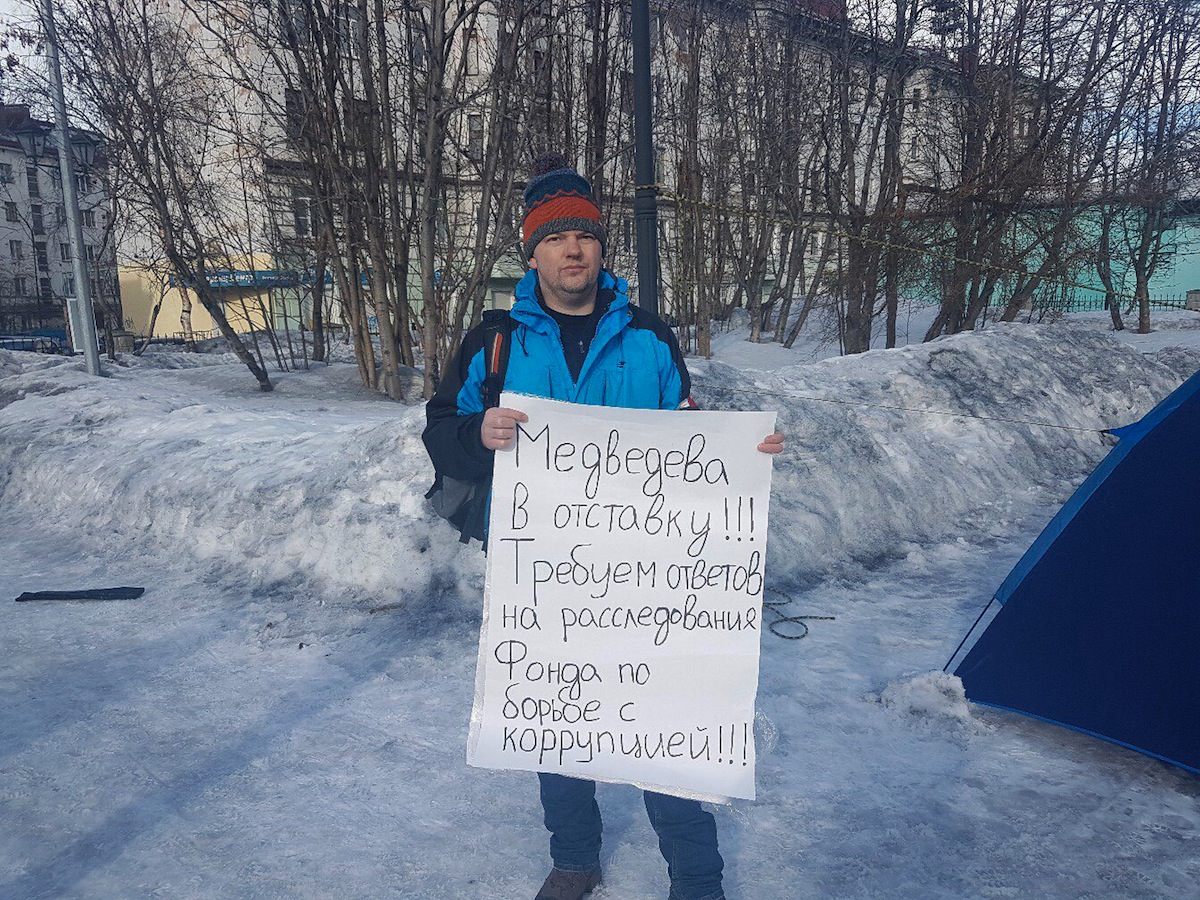 Медведева
в отставку!!!
Требуем ответов
на расследования
Фонда по
борьбе с
коррупцией!!!